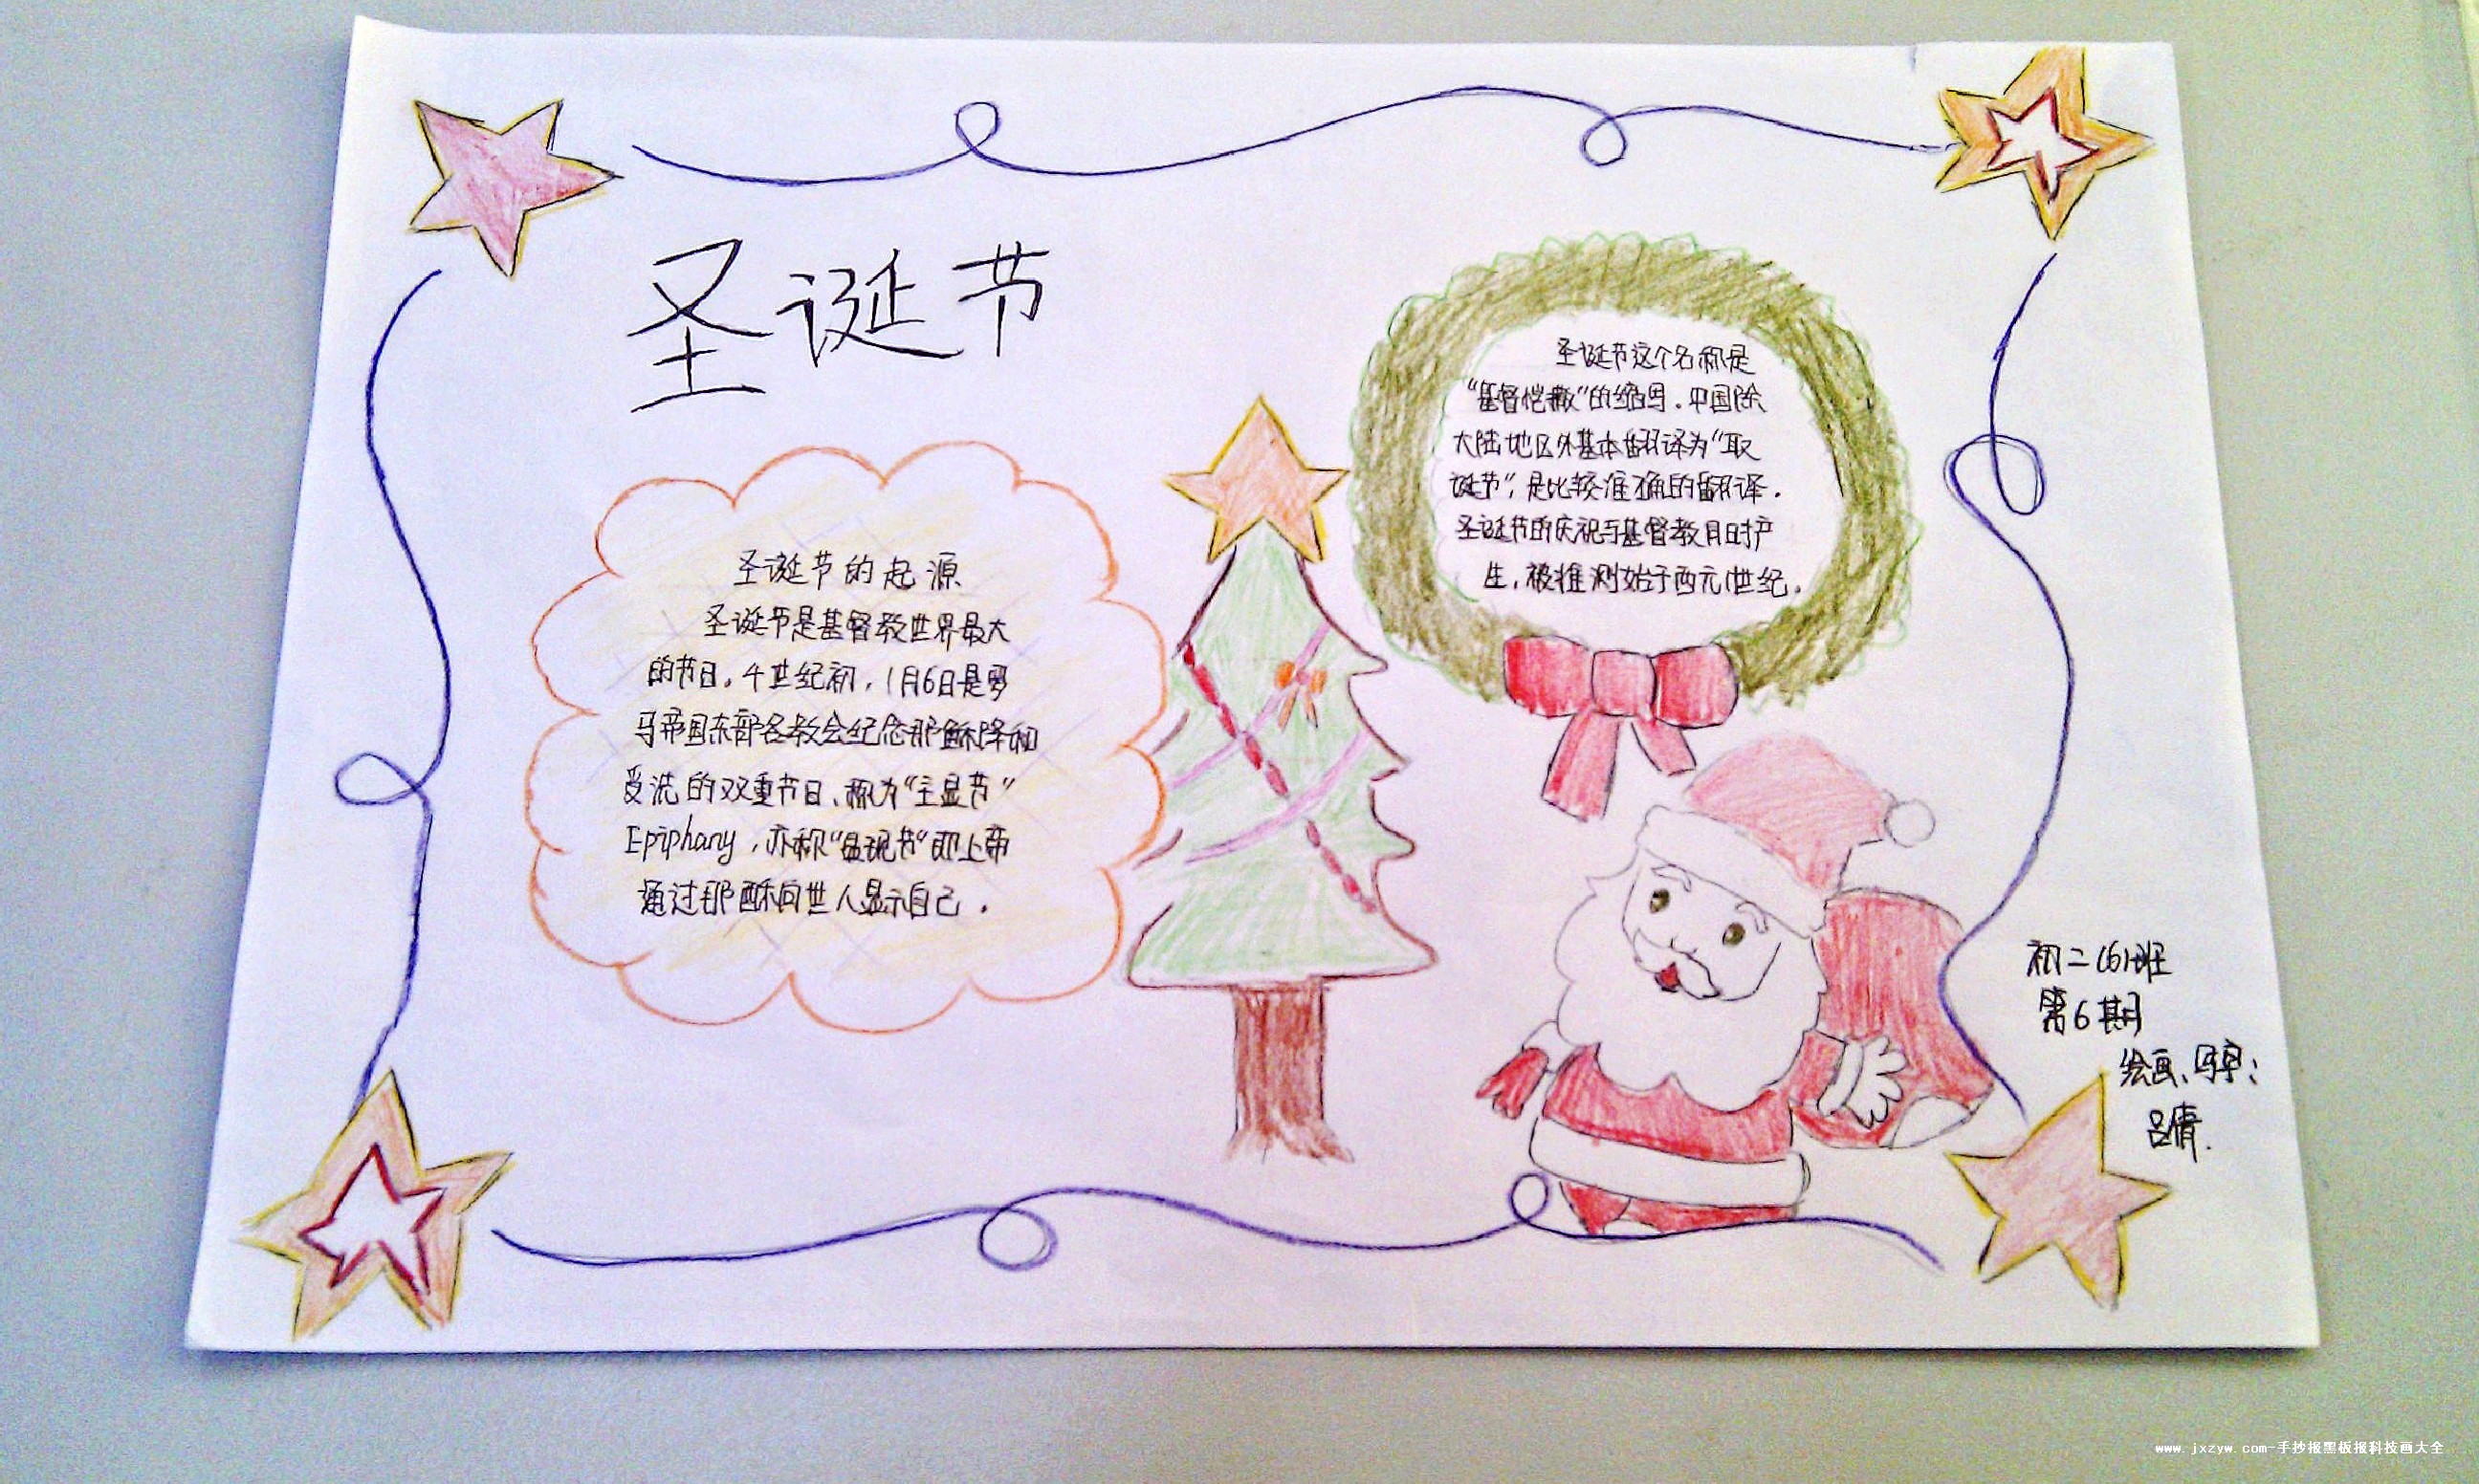 圣诞节
圣诞节的起源
圣诞节是基督教世界最大
的节日。4世纪初，1月6日是罗
马帝国东部各教会纪念耶稣降和
受洗的双重节日、称为“主显节”
Epiphany，亦称“显现节“即上帝
通过耶稣向世人显示自己。
圣诞节这个名称是
“基督 的缩写．中国除
大陆地区外基本翻译为“取
诞节”，是比较准确的翻译．
圣诞节的庆祝与基督教 时产
生，被推测始于西元1世纪．
初二(6)班
第6期
绘画、写字：
吕倩．
www.jxzyw.com-手抄报黑板报科技画大全